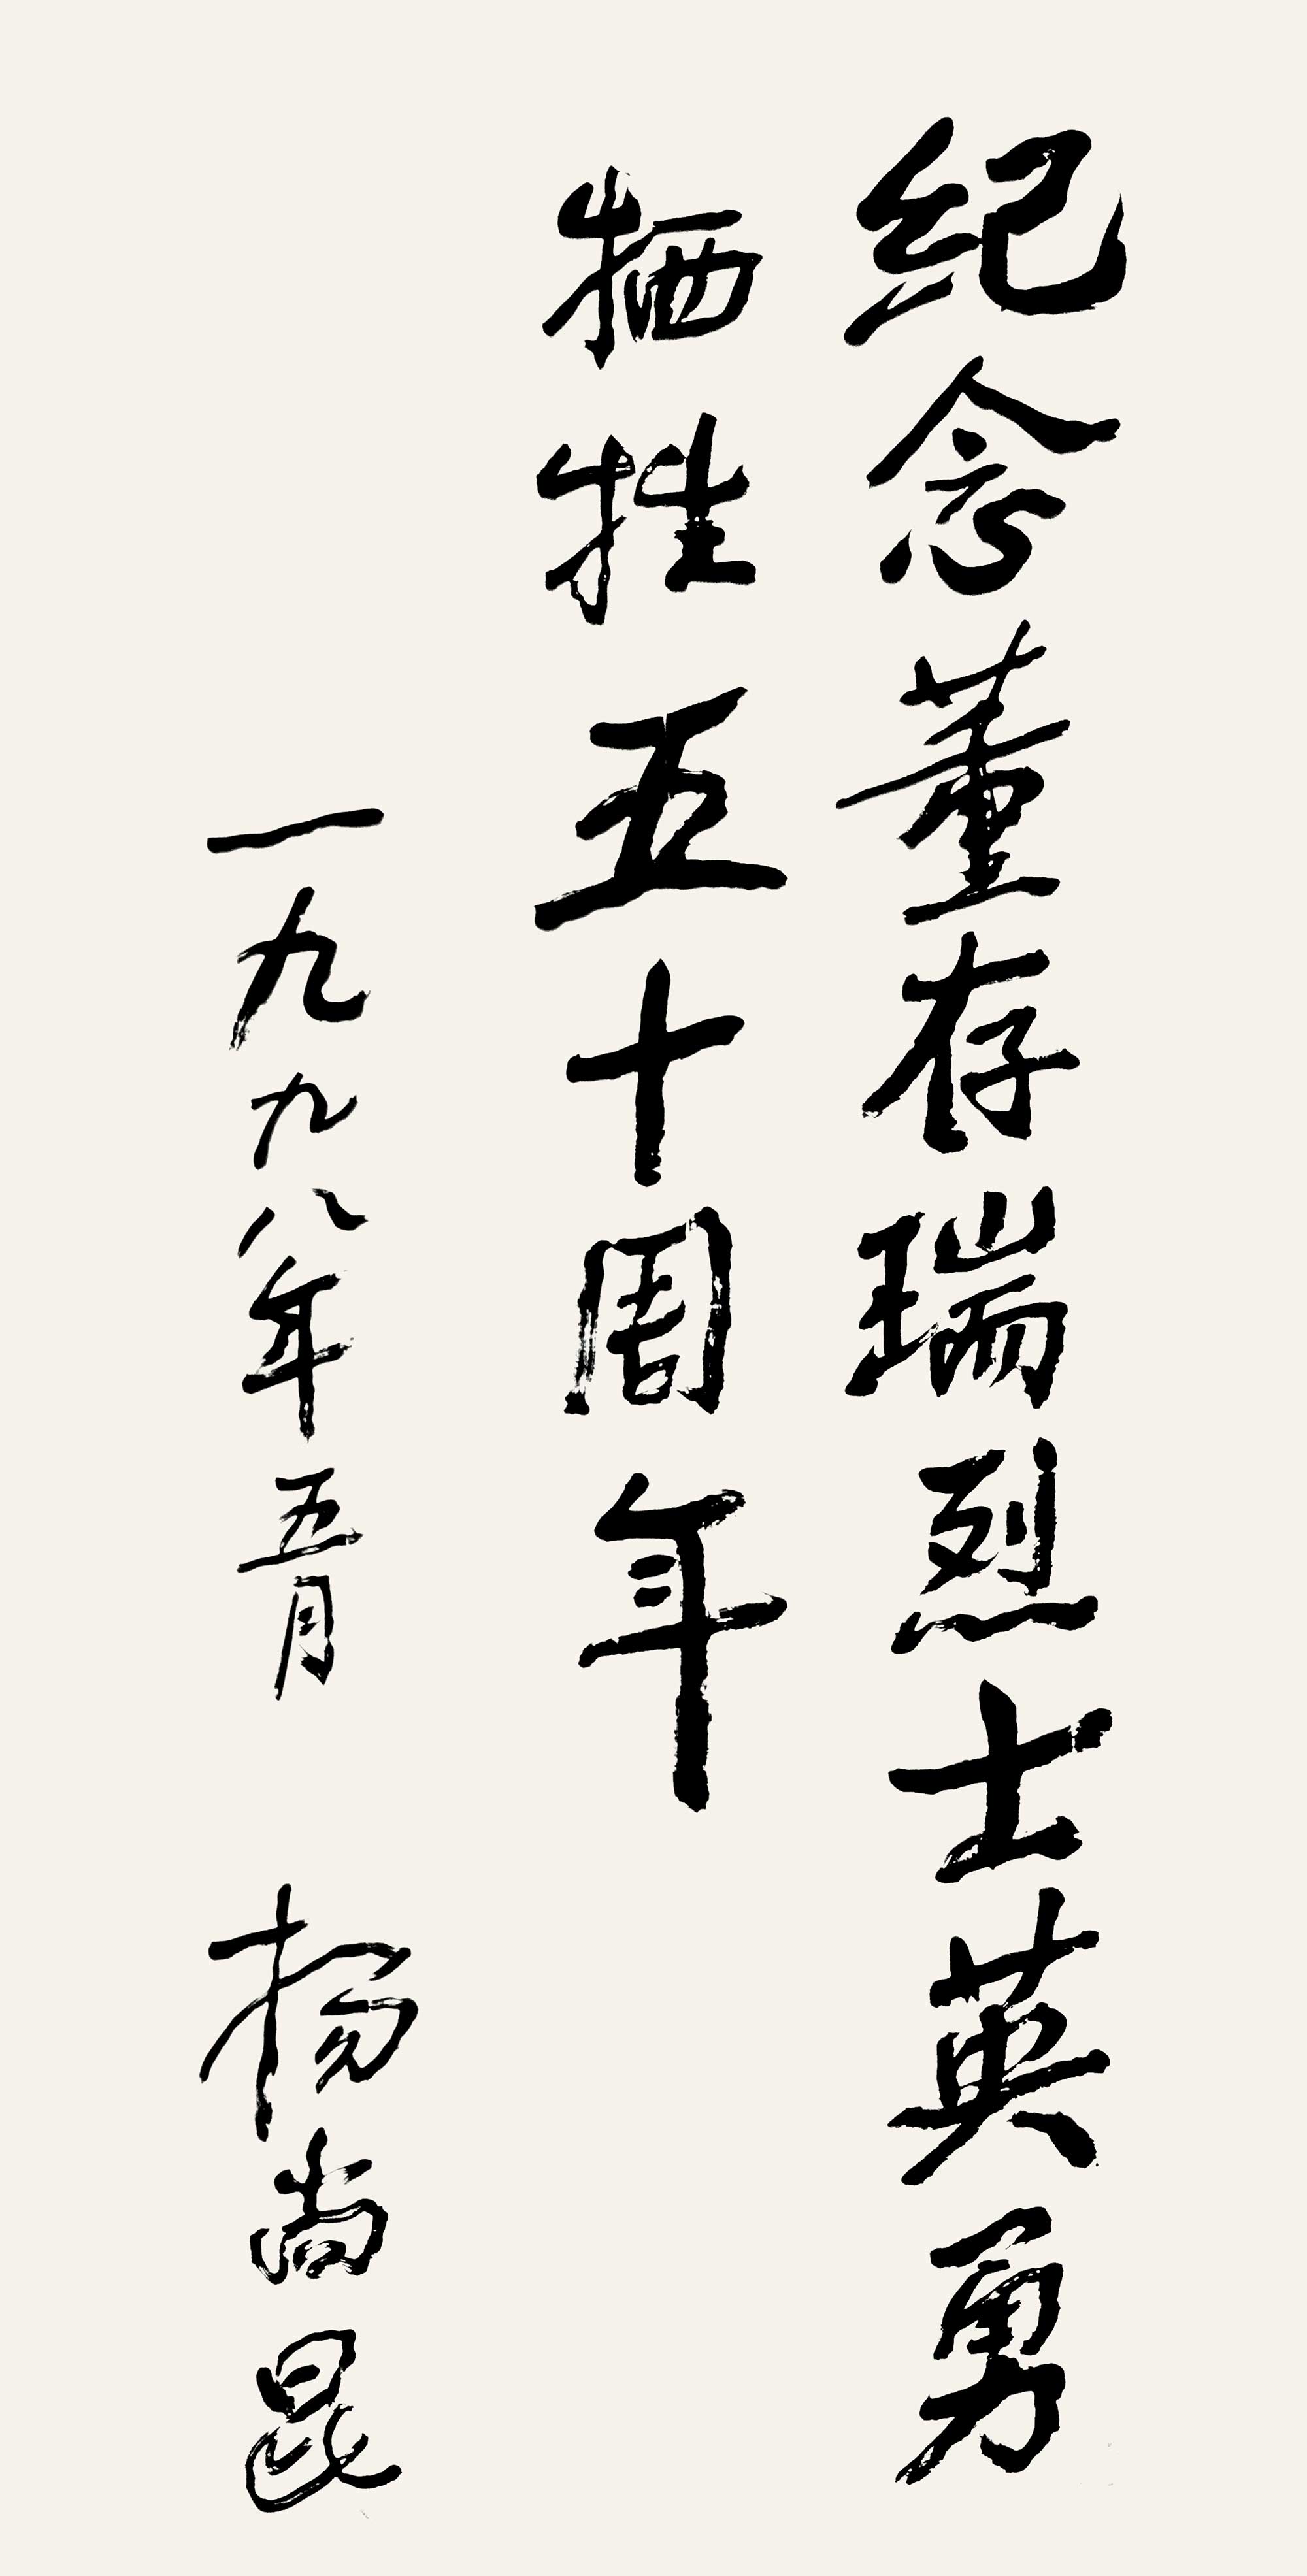 纪念董存瑞烈士英勇
牺牲五十周年
一九九八年五月 杨尚昆